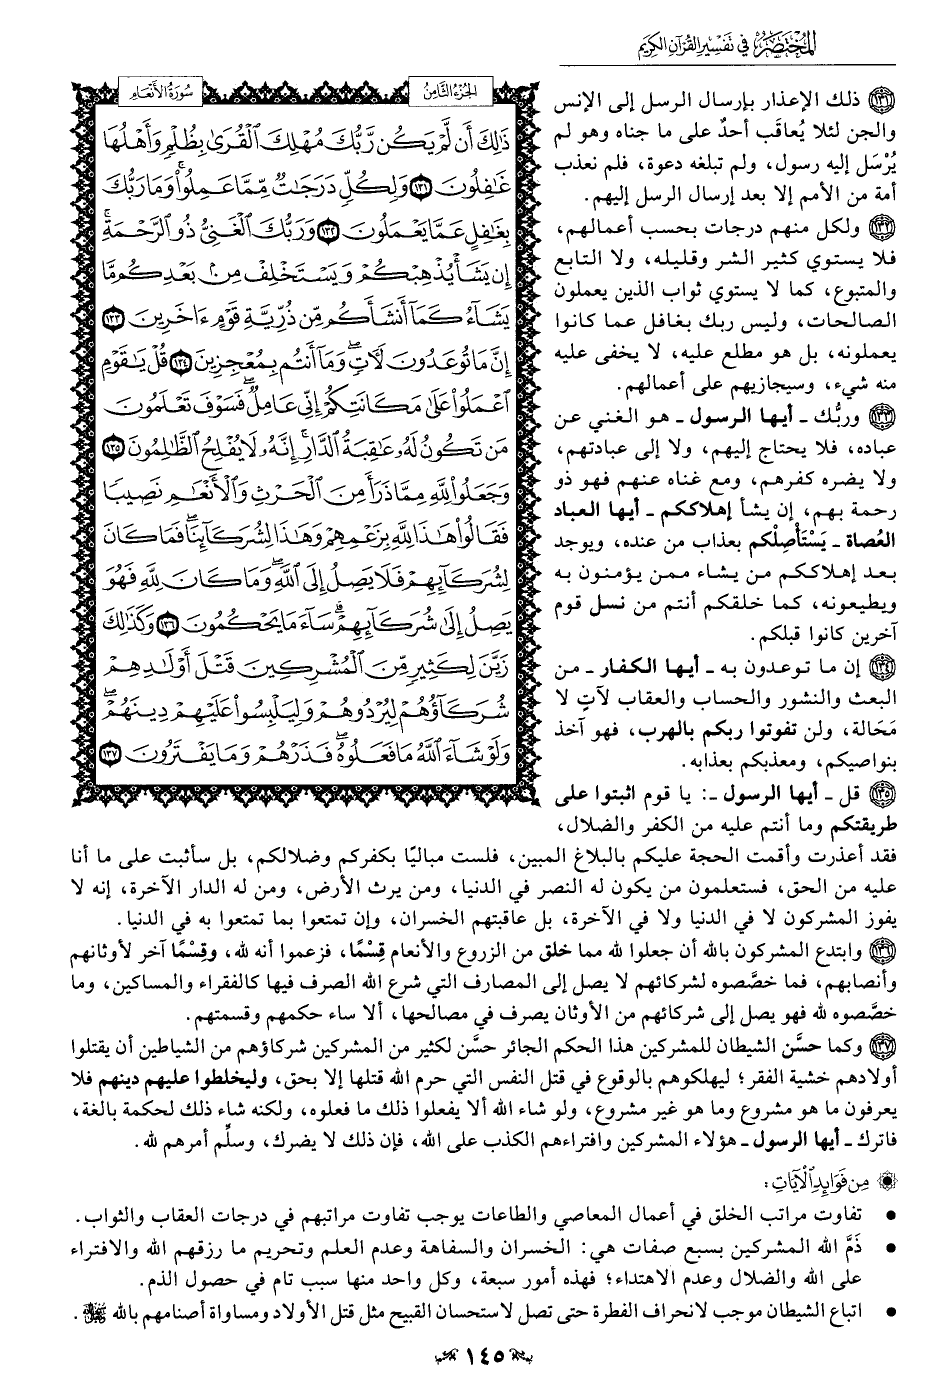 المختصر في تفسير القرآن الكريم
الجزء الثامن
سورة الأنعام
ذَٰلِكَ أَن لَّمْ يَكُن رَّبُّكَ مُهْلِكَ ٱلْقُرَىٰ بِظُلْمٍ وَأَهْلُهَا
غَٰفِلُونَ ١٣١ وَلِكُلٍّ دَرَجَٰتٌ مِّمَّا عَمِلُوا۟ ۚ وَمَا رَبُّكَ
بِغَٰفِلٍ عَمَّا يَعْمَلُونَ ١٣٢ وَرَبُّكَ ٱلْغَنِىُّ ذُو ٱلرَّحْمَةِ ۚ
إِن يَشَأْ يُذْهِبْكُمْ وَيَسْتَخْلِفْ مِنۢ بَعْدِكُم مَّا
يَشَآءُ كَمَآ أَنشَأَكُم مِّن ذُرِّيَّةِ قَوْمٍ ءَاخَرِينَ ١٣٣
إِنَّ مَا تُوعَدُونَ لَءَاتٍ ۖ وَمَآ أَنتُم بِمُعْجِزِينَ ١٣٤ قُلْ يَٰقَوْمِ
ٱعْمَلُوا۟ عَلَىٰ مَكَانَتِكُمْ إِنِّى عَامِلٌ ۖ فَسَوْفَ تَعْلَمُونَ
مَن تَكُونُ لَهُۥ عَٰقِبَةُ ٱلدَّارِ ۗ إِنَّهُۥ لَا يُفْلِحُ ٱلظَّٰلِمُونَ ١٣٥
وَجَعَلُوا۟ لِلَّهِ مِمَّا ذَرَأَ مِنَ ٱلْحَرْثِ وَٱلْأَنْعَٰمِ نَصِيبًا
فَقَالُوا۟ هَٰذَا لِلَّهِ بِزَعْمِهِمْ وَهَٰذَا لِشُرَكَآئِنَا ۖ فَمَا كَانَ
لِشُرَكَآئِهِمْ فَلَا يَصِلُ إِلَى ٱللَّهِ ۖ وَمَا كَانَ لِلَّهِ فَهُوَ
يَصِلُ إِلَىٰ شُرَكَآئِهِمْ ۗ سَآءَ مَا يَحْكُمُونَ ١٣٦ وَكَذَٰلِكَ
زَيَّنَ لِكَثِيرٍ مِّنَ ٱلْمُشْرِكِينَ قَتْلَ أَوْلَٰدِهِمْ
شُرَكَآؤُهُمْ لِيُرْدُوهُمْ وَلِيَلْبِسُوا۟ عَلَيْهِمْ دِينَهُمْ ۖ
وَلَوْ شَآءَ ٱللَّهُ مَا فَعَلُوهُ ۖ فَذَرْهُمْ وَمَا يَفْتَرُونَ ١٣٧
١٣١ ذلك الإعذار بإرسال الرسل إلى الإنس
والجن لئلا يُعاقَب أحدٌ على ما جناه وهو لم
يُرْسَل إليه رسول، ولم تبلغه دعوة، فلم نعذب
أمة من الأمم إلا بعد إرسال الرسل إليهم.
١٣٢ ولكل منهم درجات بحسب أعمالهم،
فلا يستوي كثير الشر وقليله، ولا التابع
والمتبوع، كما لا يستوي ثواب الذين يعملون
الصالحات، وليس ربك بغافل عما كانوا
يعملونه، بل هو مطلع عليه، لا يخفى عليه
منه شيء، وسيجازيهم على أعمالهم.
١٣٣ وربُّك ـ أيها الرسول ـ هو الغني عن
عباده، فلا يحتاج إليهم، ولا إلى عبادتهم،
ولا يضره كفرهم، ومع غناه عنهم فهو ذو
رحمة بهم، إن يشأ إهلاككم ـ أيها العباد
العُصاة ـ يَسْتَأْصِلْكم بعذاب من عنده، ويوجد
بعد إهلاككم من يشاء ممن يؤمنون به
ويطيعونه، كما خلقكم أنتم من نسل قوم
آخرين كانوا قبلكم.
١٣٤ إن ما توعدون به ـ أيها الكفار ـ من
البعث والنشور والحساب والعقاب لآتٍ لا
مَحَالة، ولن تفوتوا ربكم بالهرب، فهو آخذ
بنواصيكم، ومعذبكم بعذابه.
١٣٥ قل ـ أيها الرسول ـ: يا قوم اثبتوا على
طريقتكم وما أنتم عليه من الكفر والضلال،
فقد أعذرت وأقمت الحجة عليكم بالبلاغ المبين، فلست مباليًا بكفركم وضلالكم، بل سأثبت على ما أنا
عليه من الحق، فستعلمون من يكون له النصر في الدنيا، ومن يرث الأرض، ومن له الدار الآخرة، إنه لا
يفوز المشركون لا في الدنيا ولا في الآخرة، بل عاقبتهم الخسران، وإن تمتعوا بما تمتعوا به في الدنيا.
١٣٦ وابتدع المشركون بالله أن جعلوا لله مما خلق من الزروع والأنعام قِسْمًا، فزعموا أنه لله، وقِسْمًا آخر لأوثانهم
وأنصابهم، فما خصَّصوه لشركائهم لا يصل إلى المصارف التي شرع الله الصرف فيها كالفقراء والمساكين، وما
خصَّصوه لله فهو يصل إلى شركائهم من الأوثان يصرف في مصالحها، ألا ساء حكمهم وقسمتهم.
١٣٧ وكما حسَّن الشيطان للمشركين هذا الحكم الجائر حسَّن لكثير من المشركين شركاؤهم من الشياطين أن يقتلوا
أولادهم خشية الفقر؛ ليهلكوهم بالوقوع في قتل النفس التي حرم الله قتلها إلا بحق، وليخلطوا عليهم دينهم فلا
يعرفون ما هو مشروع وما هو غير مشروع، ولو شاء الله ألا يفعلوا ذلك ما فعلوه، ولكنه شاء ذلك لحكمة بالغة،
فاترك ـ أيها الرسول ـ هؤلاء المشركين وافتراءهم الكذب على الله، فإن ذلك لا يضرك، وسلِّم أمرهم لله.
من فوائد الآيات:
• تفاوت مراتب الخلق في أعمال المعاصي والطاعات يوجب تفاوت مراتبهم في درجات العقاب والثواب.
• ذَمَّ الله المشركين بسبع صفات هي: الخسران والسفاهة وعدم العلم وتحريم ما رزقهم الله والافتراء
على الله والضلال وعدم الاهتداء؛ فهذه أمور سبعة، وكل واحد منها سبب تام في حصول الذم.
• اتباع الشيطان موجب لانحراف الفطرة حتى تصل لاستحسان القبيح مثل قتل الأولاد ومساواة أصنامهم بالله.
١٤٥